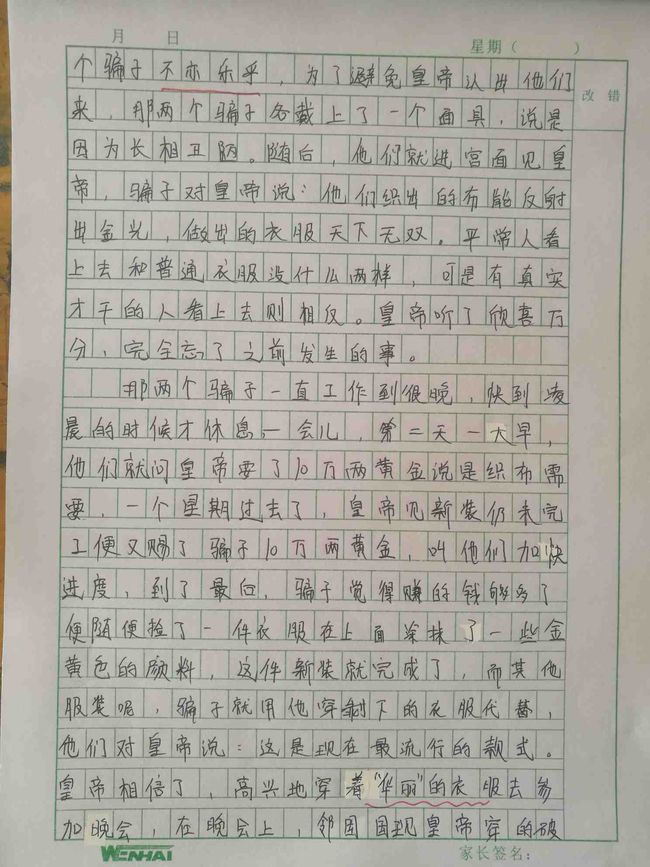 月 日 星期（ ）
改 错
个骗子不亦乐乎，为了避免皇帝认出他们
来，那两个骗子各戴上了一个面具，说是
因为长相丑陋。随后，他们就进宫面见皇
帝，骗子对皇帝说：他们织出的布能反射
出金光，做出的衣服天下无双。平常人看
上去和普通衣服没什么两样，可是有真实
才干的人看上去则相反。皇帝听了欣喜万
分，完全忘了之前发生的事。
那两个骗子一直工作到很晚，快到凌
晨的时候才休息一会儿，第二天一大早，
他们就问皇帝要了10万两黄金说是织布需
要，一个星期过去了，皇帝见新装仍未完
工便又赐了骗子10万两黄金，叫他们加快
进度，到了最后，骗子觉得赚的钱够多了
便随便捡了一件衣服在上面涂抹了一些金
黄色的颜料，这件新装就完成了，而其他
服装呢，骗子就用他穿剩下的衣服代替，
他们对皇帝说：这是现在最流行的款式。
皇帝相信了，高兴地穿着“华丽”的衣服去参
加晚会，在晚会上，邻国国现皇帝穿的破
WENHAI 家长签名：